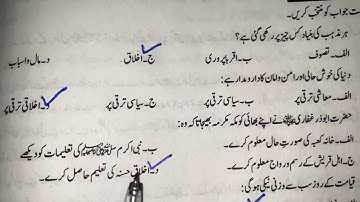 ست جواب کو منتخب کریں۔
ہر مذہب کی بنیاد کس چیز پر رکھی گئی ہے؟
الف۔ تصوف ب۔ اقربا پروری ج۔ اخلاق د۔ مال و اسباب
دنیا کی خوش حالی اور امن و امان کا دارومدار ہے:
الف۔ معاشی ترقی پر ب۔ سیاسی ترقی پر ج۔ سیاسی ترقی پر د۔ اخلاقی ترقی پر
حضرت ابوذر غفاری نے اپنے بھائی کو مکہ مکرمہ بھیجا تاکہ وہ:
الف۔ خانہ کعبہ کی صورتِ حال معلوم کرے۔ ب۔ نبی اکرم ﷺ کی تعلیمات کو دیکھے
ج۔ اہلِ قریش کے رسم و رواج معلوم کرے۔ د۔ اخلاقِ حسنہ کی تعلیم حاصل کرے۔
قیامت کے روز سب سے وزنی نیکی ہو گی: